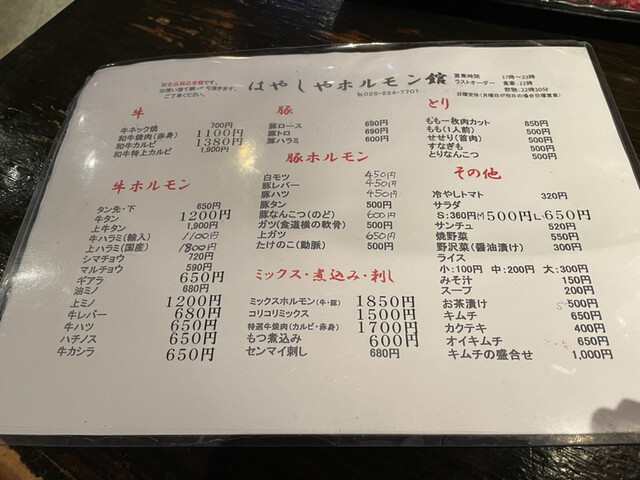 はやしやホルモン館
℡025-224-7701
営業時間 17時～23時
ラストオーダー 食事:22時
飲物:22時30分
牛
牛ネック焼 700円
和牛焼肉(赤身) 1100円
和牛カルビ 1380円
和牛特上カルビ 1,900円
牛ホルモン
タン先・下 650円
牛タン 1200円
上牛タン 1,900円
牛ハラミ(輸入) 1100円
上ハラミ(国産) 1800円
シマチョウ 720円
マルチョウ 590円
ギアラ 650円
油ミノ 680円
上ミノ 1200円
牛レバー 680円
牛ハツ 650円
ハチノス 650円
牛カシラ 650円
豚
豚ロース 690円
豚トロ 690円
豚ハラミ 600円
豚ホルモン
白モツ 450円
豚レバー 450円
豚ハツ 450円
豚タン 500円
豚なんこつ(のど) 600円
ガツ(食道横の軟骨) 500円
上ガツ 650円
たけのこ(動脈) 500円
ミックス・煮込み・刺し
ミックスホルモン(牛・豚) 1850円
コリコリミックス 1500円
特選牛焼肉(カルビ・赤身) 1700円
もつ煮込み 600円
センマイ刺し 680円
とり
もも一枚肉カット 850円
もも(1人前) 500円
せせり(首肉) 500円
すなぎも 500円
とりなんこつ 500円
その他
冷やしトマト 320円
サラダ
S:360円 M500円 L-650円
サンチュ 520円
焼野菜 550円
野沢菜(醤油漬け) 300円
ライス
小:100円 中:200円 大:300円
みそ汁 150円
スープ 200円
お茶漬け 500円
キムチ 650円
カクテキ 400円
オイキムチ 650円
キムチの盛合せ 1,000円